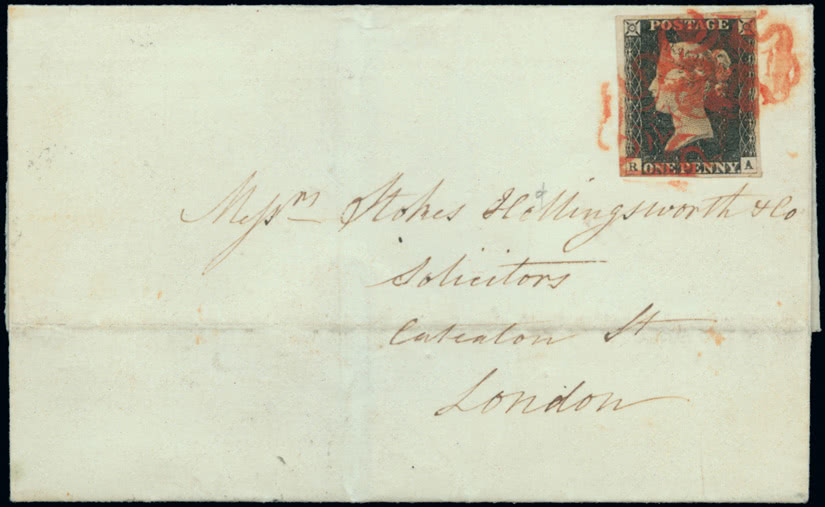 POSTAGE
R ONE PENNY A
Messrs Stokes Hollingsworth & Co
Solicitors
Cateaton St
London